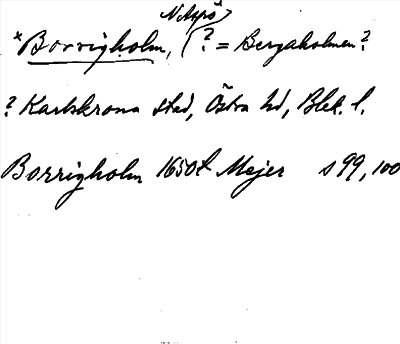 Nättrö
*Borrigholm, (? = Bergaholmen?
? Karlskrona stad, Östra hd, Blek. l.
Borrigholm 1650t Mejer s 99, 100